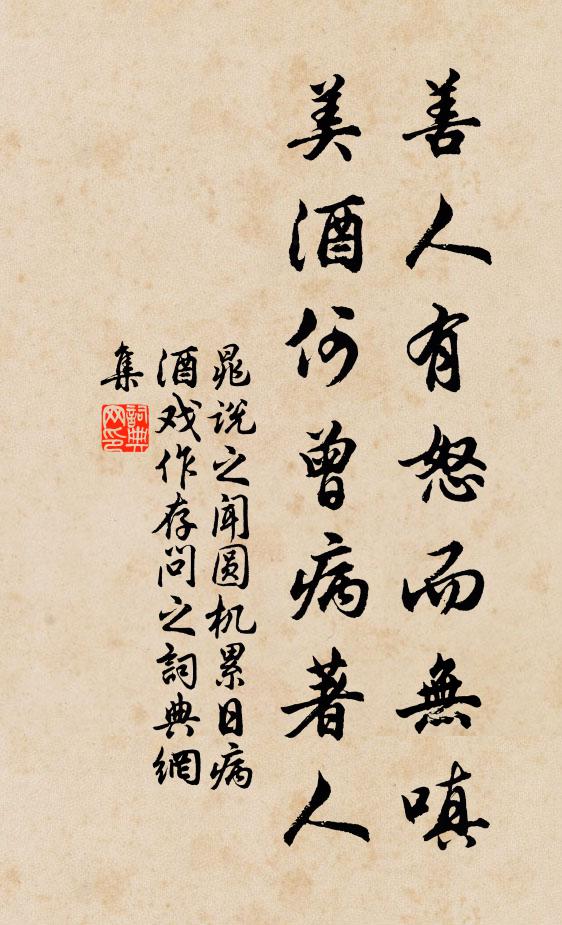 善人有怒而無嗔
美酒何曾病著人
晁说之闻圆机累日病
酒戏作存问之詞典網
集
詞典
网印